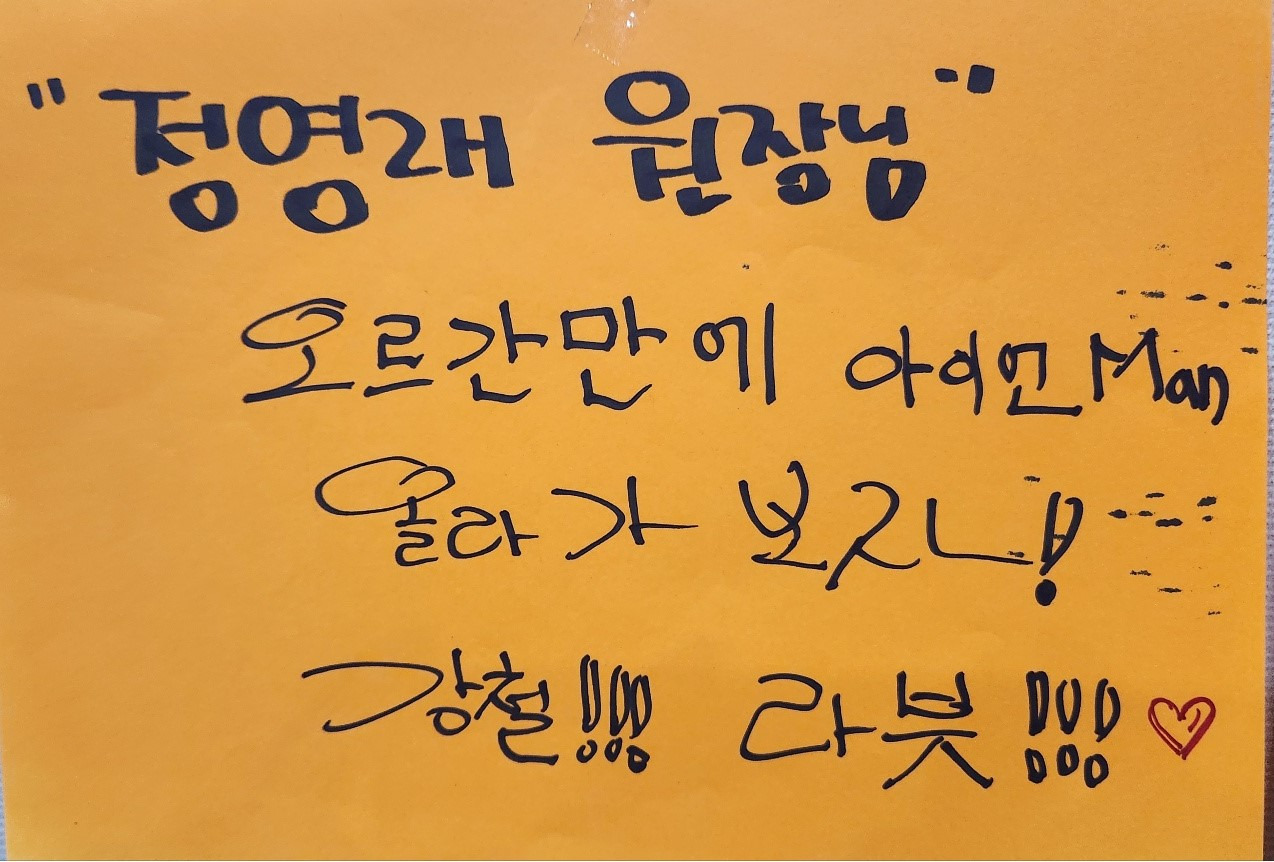 "정영래 원장님"
오르간만에 아이언Man
올라가 보자!
강철!!!! 라붓!!!♡